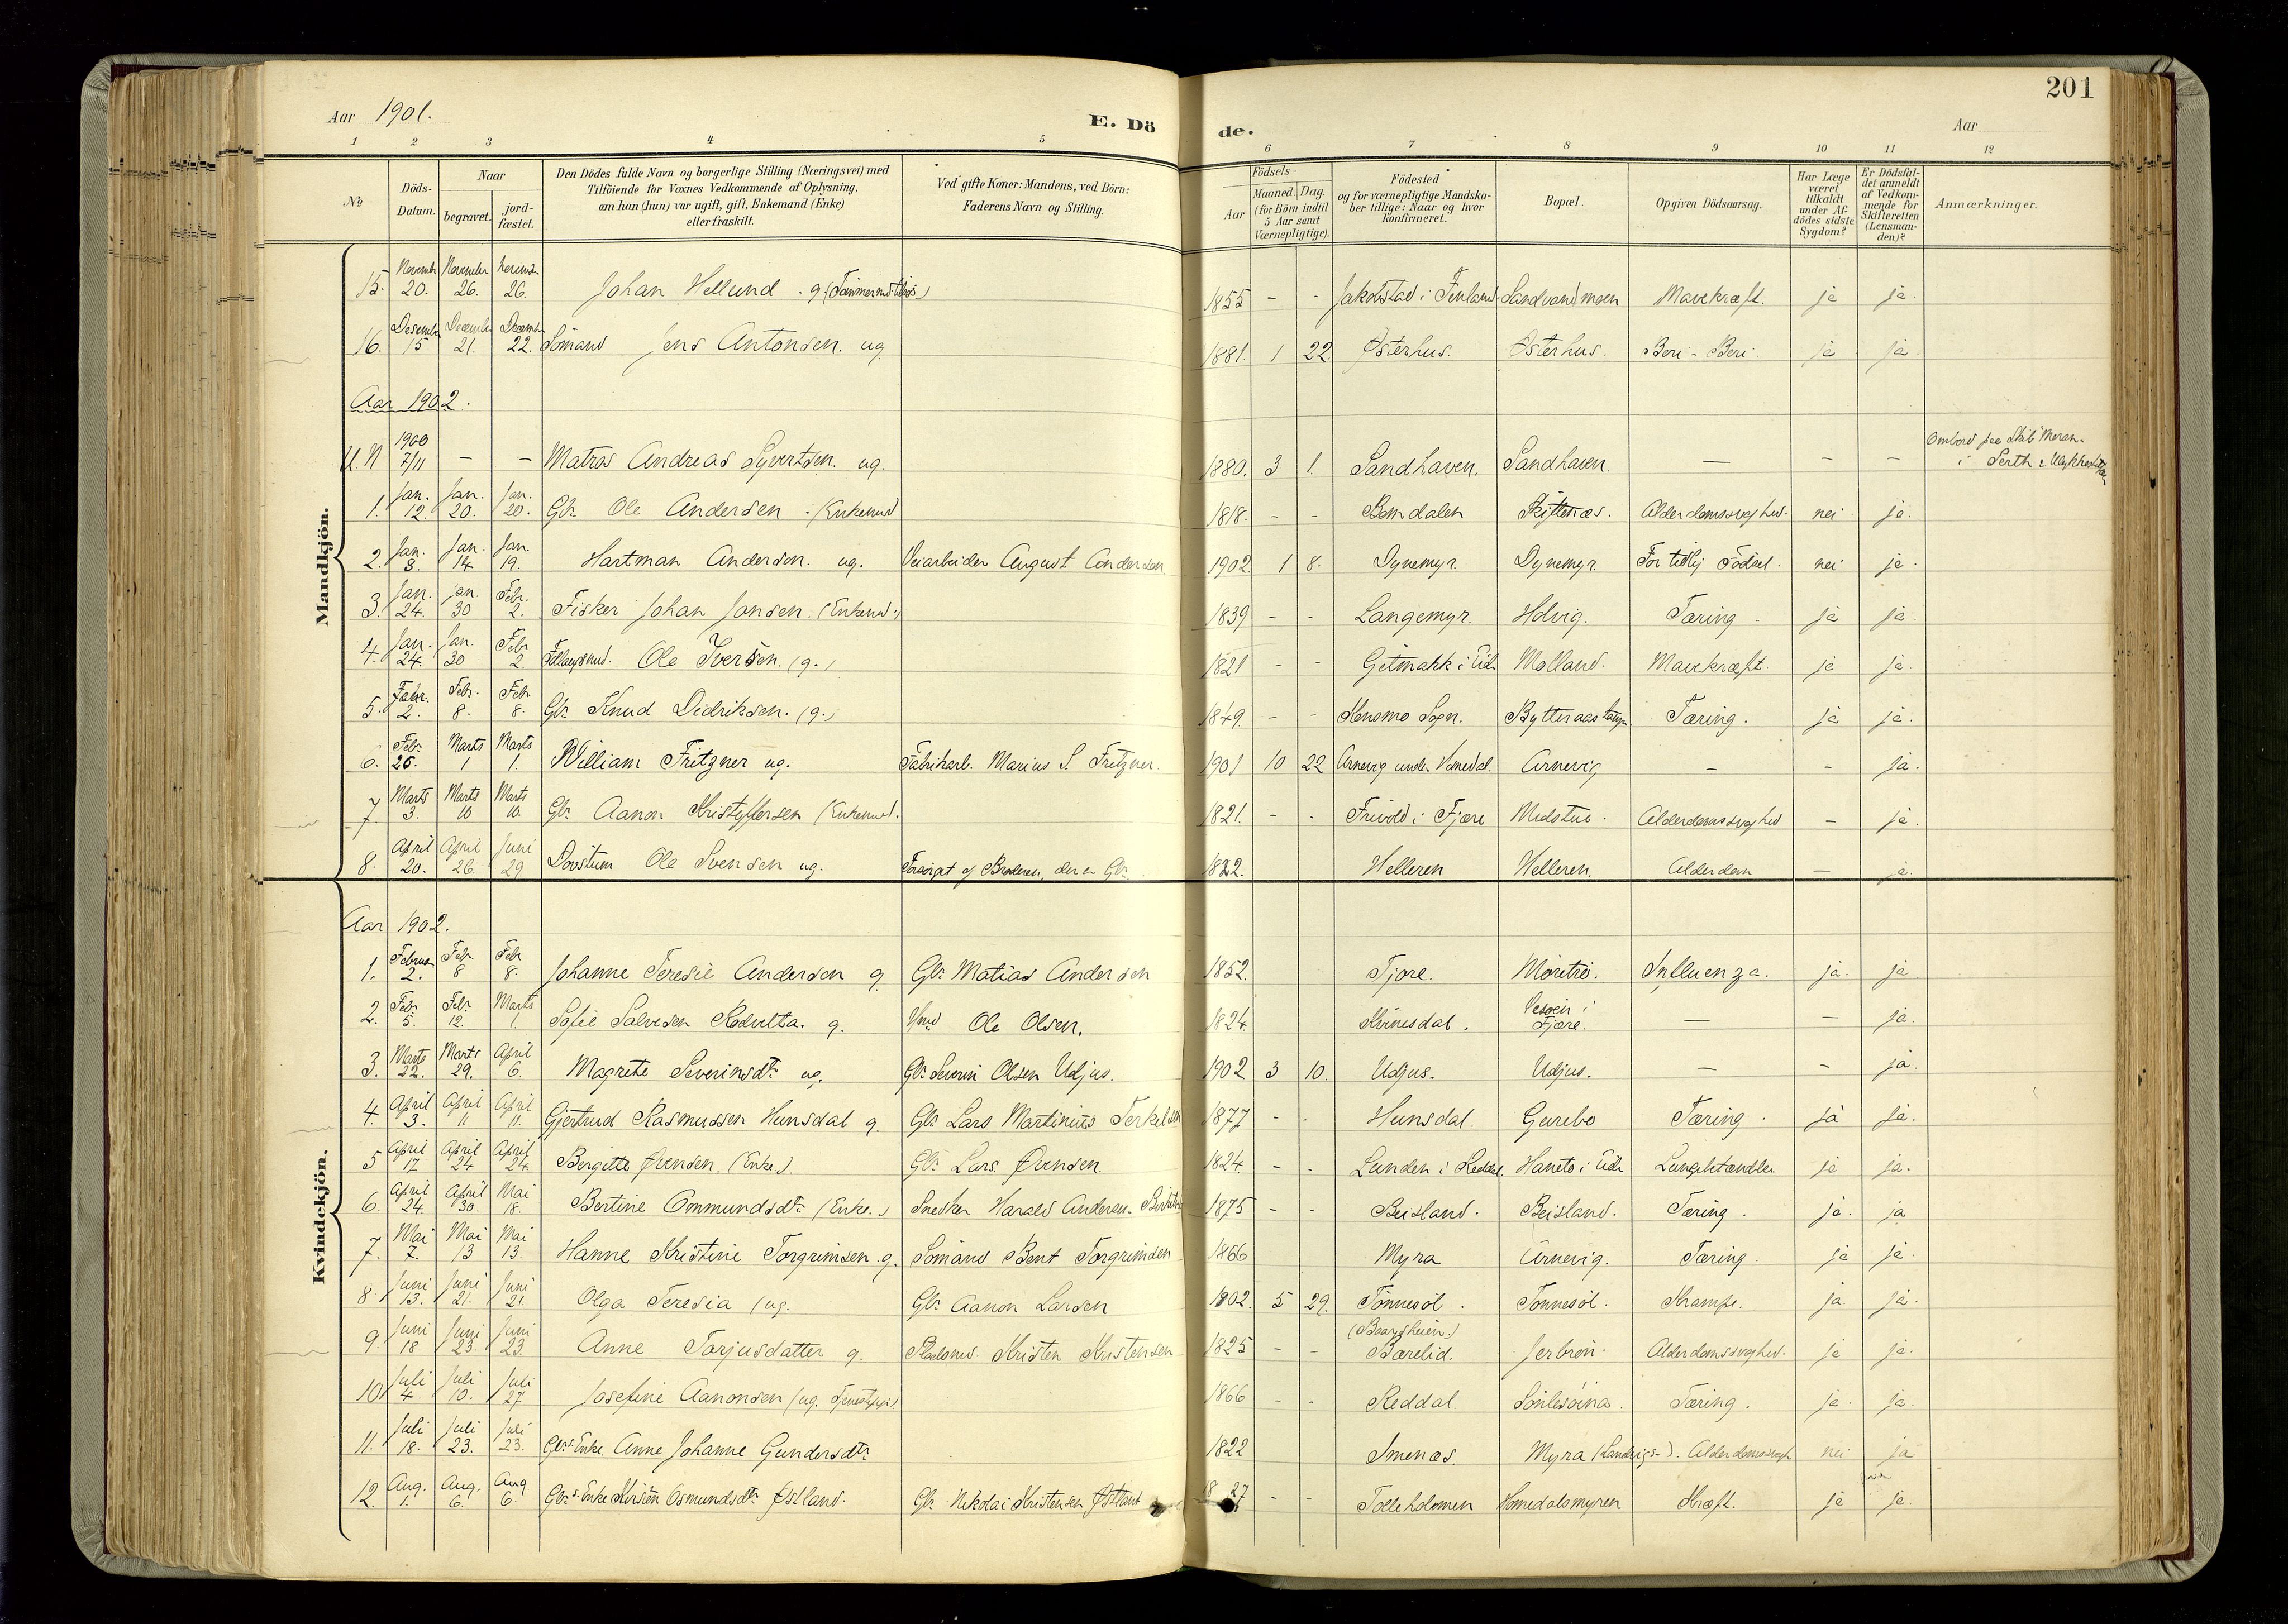 201
Aar 1901.
E. Dö de.
Aar
1 2 3 4 5 6 7 8 9 10 11 12
No
Döds-Datum.
Naar
begravet.
jord-fæstet.
Den Dödes fulde Navn og borgerlige Stilling (Næringsvei) med
Tilföiende for Voxnes Vedkommende af Oplysning,
om han (hun) var ugift, gift, Enkemand (Enke)
eller fraskilt.
Ved gifte Koner: Mandens, ved Börn:
Faderens Navn og Stilling.
Födsels-
Aar
Maaned. Dag.
(for Börn indtil
5 Aar samt
Værnepligtige).
Födested
og for værnepligtige Mandska-
ber tillige: Naar og hvor
konfirmeret.
Bopæl.
Opgiven Dödsaarsag.
Har Læge
været
tilkaldt
under Af-
dödes sidste
Sygdom?
Er Dödsfal-
det anmeldt
af Vedkom-
mende for
Skifteretten
(Lensman-
den)?
Anmærkninger.
Mandkjön.
15. November 20. November 26. 26. Johan Hellund g. 1855 - - Jakobstad i Finland Sandvandmoen Mavekræft. ja ja.
16. Desember 15 Desember 21. Desember 22. Sömand Jens Antonsen. ug 1881. 1 22. Østerhus. Østerhus. Beri-Beri. ja ja.
Aar 1902.
U.N 1900 7/11 - - Matros Andreas Syvertsen. ug. 1880. 3 1. Sandhaven. Sandhaven. - - - Ombord paa Skib i Perth
1. Jan. 12. Jan. 20. Jan. 20. Gbr. Ole Andersen (Enkemd 1818. - - Bomdalen Alderdomssvaghed. nei ja.
2. Jan. 8. Jan. 14 Jan. 19. Hartman Anderson. ug. Veiarbeider August Anderson 1902 1 8. Dynemyr Dynemyr For tidlig Födsel. nei ja.
3. Jan. 24. Jan. 30 Febr. 2. Fisker Johan Jansen. (Enkemd.) 1839 - - Langemyr. Holvig. Tæring. ja ja.
4. Jan. 24. Jan. 30 Febr. 2. Ole Iversen. (g.) 1821 - - Molland. Mavekræft. ja ja.
5. Febr. 2. Febr. 8. Febr. 8. Gbr. Knud Didriksen. (g.) 1849. - - Sogn. Tæring. ja ja.
6. Febr. 25. Marts 1 Marts 1. William Fritzner ug. Fabrikarb. Marius S. Fritzner. 1901 10 22 Arnevig under Homedal. Arnevig - - ja.
7. Marts 3. Marts 10 Marts 10. Gbr. Aanon Kristoffersen (Enkemd. 1821. - - Frivold i Fjære Midstue. Alderdomssvaghed - ja.
8. April 20. April 26. Juni 29 Døvstum Ole Svensen ug. Forsörget af Broderen, der er Gbr. 1822. Helleren Helleren. Alderdom - ja.
Kvindekjön.
Aar 1902.
1. Februar 2. Febr. 8 Febr. 8. Johanne Teresie Andersen g. Gbr. Matias Andersen 1852. Fjære. Moretrö. Influenza. ja. ja
2. Febr. 5. Febr. 12. Marts 1. Sofie Salvesen g. Ole Olsen. 1824. Kvinesdal. Vessøen i Fjære. - - ja.
3. Marts 22. Marts 29. April 6. Magrete Severinsdtr. ug. Gbr. Severin Olsen Udjus. 1902 3 10. Udjus. Udjus. - - ja.
4. April 3. April 11 April 11. Gjertrud Rasmussen Hunsdal g. Gbr. Lars Martinius Terkelsen 1877 - - Hunsdal. Gurebo Tæring. ja ja.
5 April 17. April 24 April 24. Bergitte Øvensen. (Enke.) Gbr. Lars Øvensen 1824 - - ja ja.
6. April 24 April 30. Mai 18. Bertine Ommundsdtr. (Enke.) Snedker Harald Andersen. 1875 - - Beisland. Beisland. Tæring. ja. ja
7. Mai 7. Mai 13 Mai 13. Hanne Kristine Torgrimsen. g. Sömand Bent Torgrimsen 1866 Myra Arnevig. Tæring. ja ja.
8 Juni 13. Juni 21. Juni 21. Olga Teresia (ug. Gbr. Aanon Larsen 1902. 5 29. Tönnesöl. Tönnesöl. Krampe. ja. ja.
9. Juni 18 Juni 23. Juni 23. Anne Torjusdatter g. Kristen Kristensen 1825 - - Bærelid. Alderdomssvaghed. ja ja.
10 Juli 4. Juli 10. Juli 27 Josefine Aanonsen (ug. 1866 - - Reddal. Tæring. ja. ja.
11. Juli 18. Juli 23. Juli 23. Gbrs. Enke Anne Johanne Gundersdtr 1822 Smenæs. Myra (Landvigs-). Alderdomssvagh nei ja
12. Aug. 1. Aug. 6. Aug. 6. Gbrs. Enke Kirsten Osmundsdtr. Østland. Gbr. Nikolai Kristensen Østland 1827 - - Tolleholomen Homedalsmyren Kræft. ja ja.